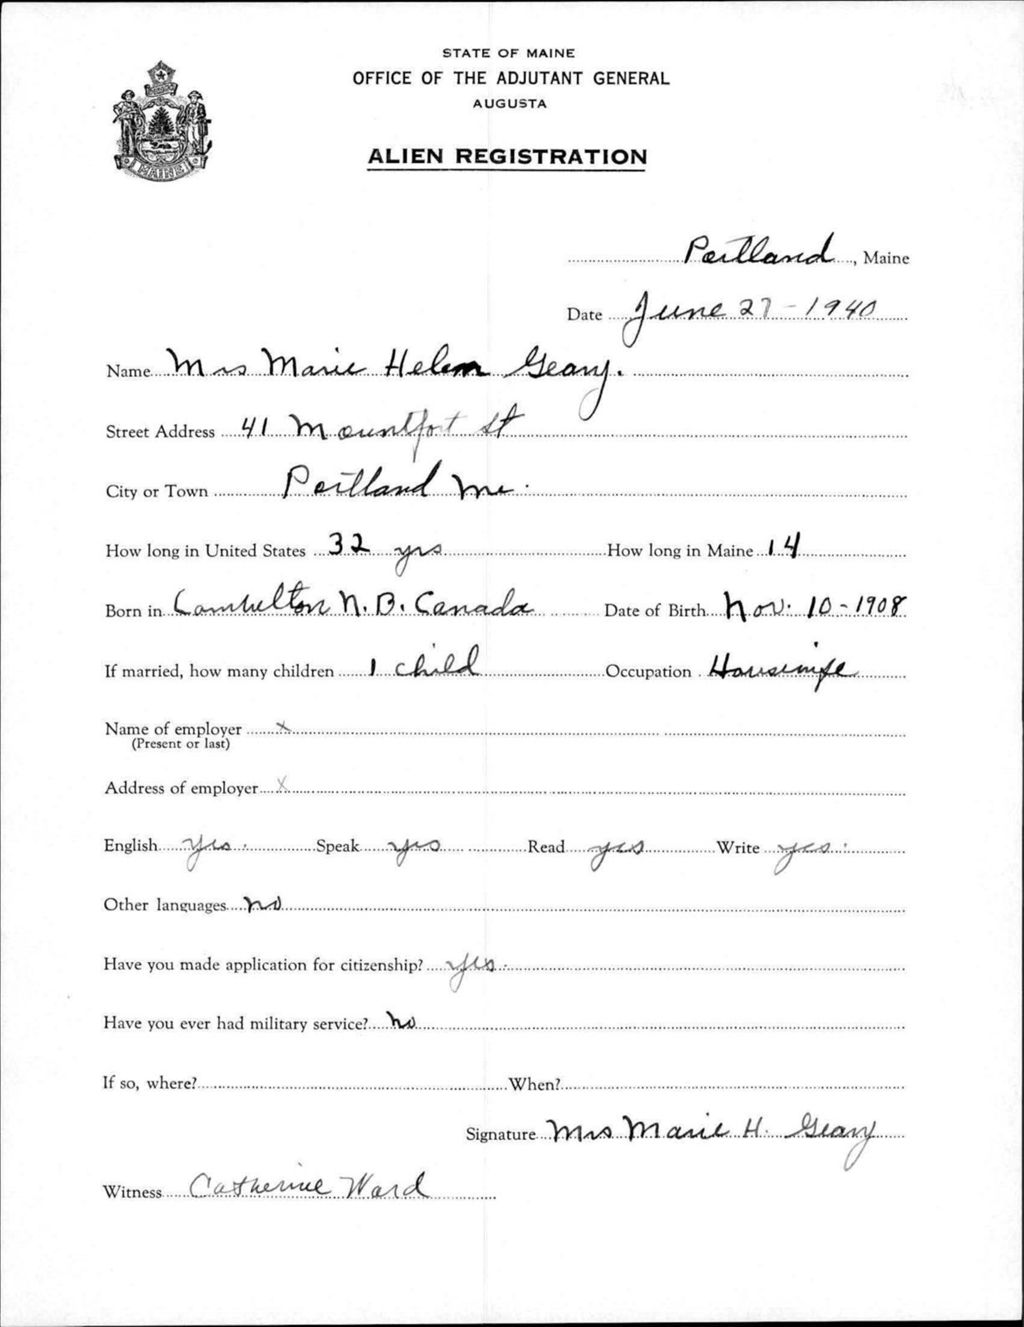 STATE OF MAINE
OFFICE OF THE ADJUTANT GENERAL
AUGUSTA
ALIEN REGISTRATION
MAINE
Portland, Maine
Date June 27-1940
Name Mrs Marie Helen Geary.
Street Address 41 Mountfort St
City or Town Portland Me.
How long in United States 32 yrs How long in Maine 14
Born in Cambelton N.B. Canada Date of Birth Nov. 10-1908
If married, how many children 1 child Occupation Housewife
Name of employer x
(Present or last)
Address of employer x
English yes. Speak yes Read yes Write yes.
Other languages no
Have you made application for citizenship? yes.
Have you ever had military service? no
If so, where? When?
Signature Mrs Marie H. Geary
Witness Catherine Ward